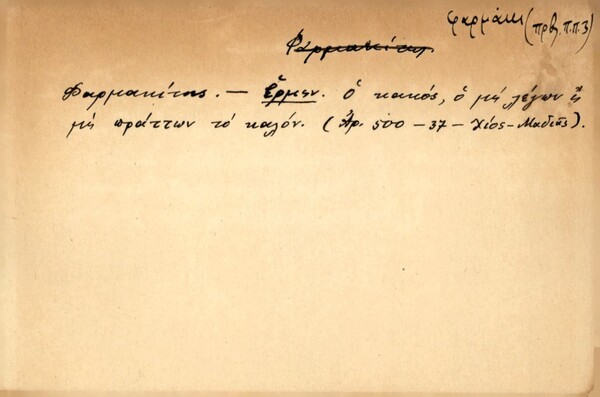 φαρμάκι (πρβ. π.π.3)
Φαρμακίτας
Φαρμακίτας. — Ἑρμην. Ὁ κακός, ὁ μή λέγων ἤ
μή πράττων τό καλόν. (Ἀρ. 500 – 37 – Χίος – Μαδιᾶς).